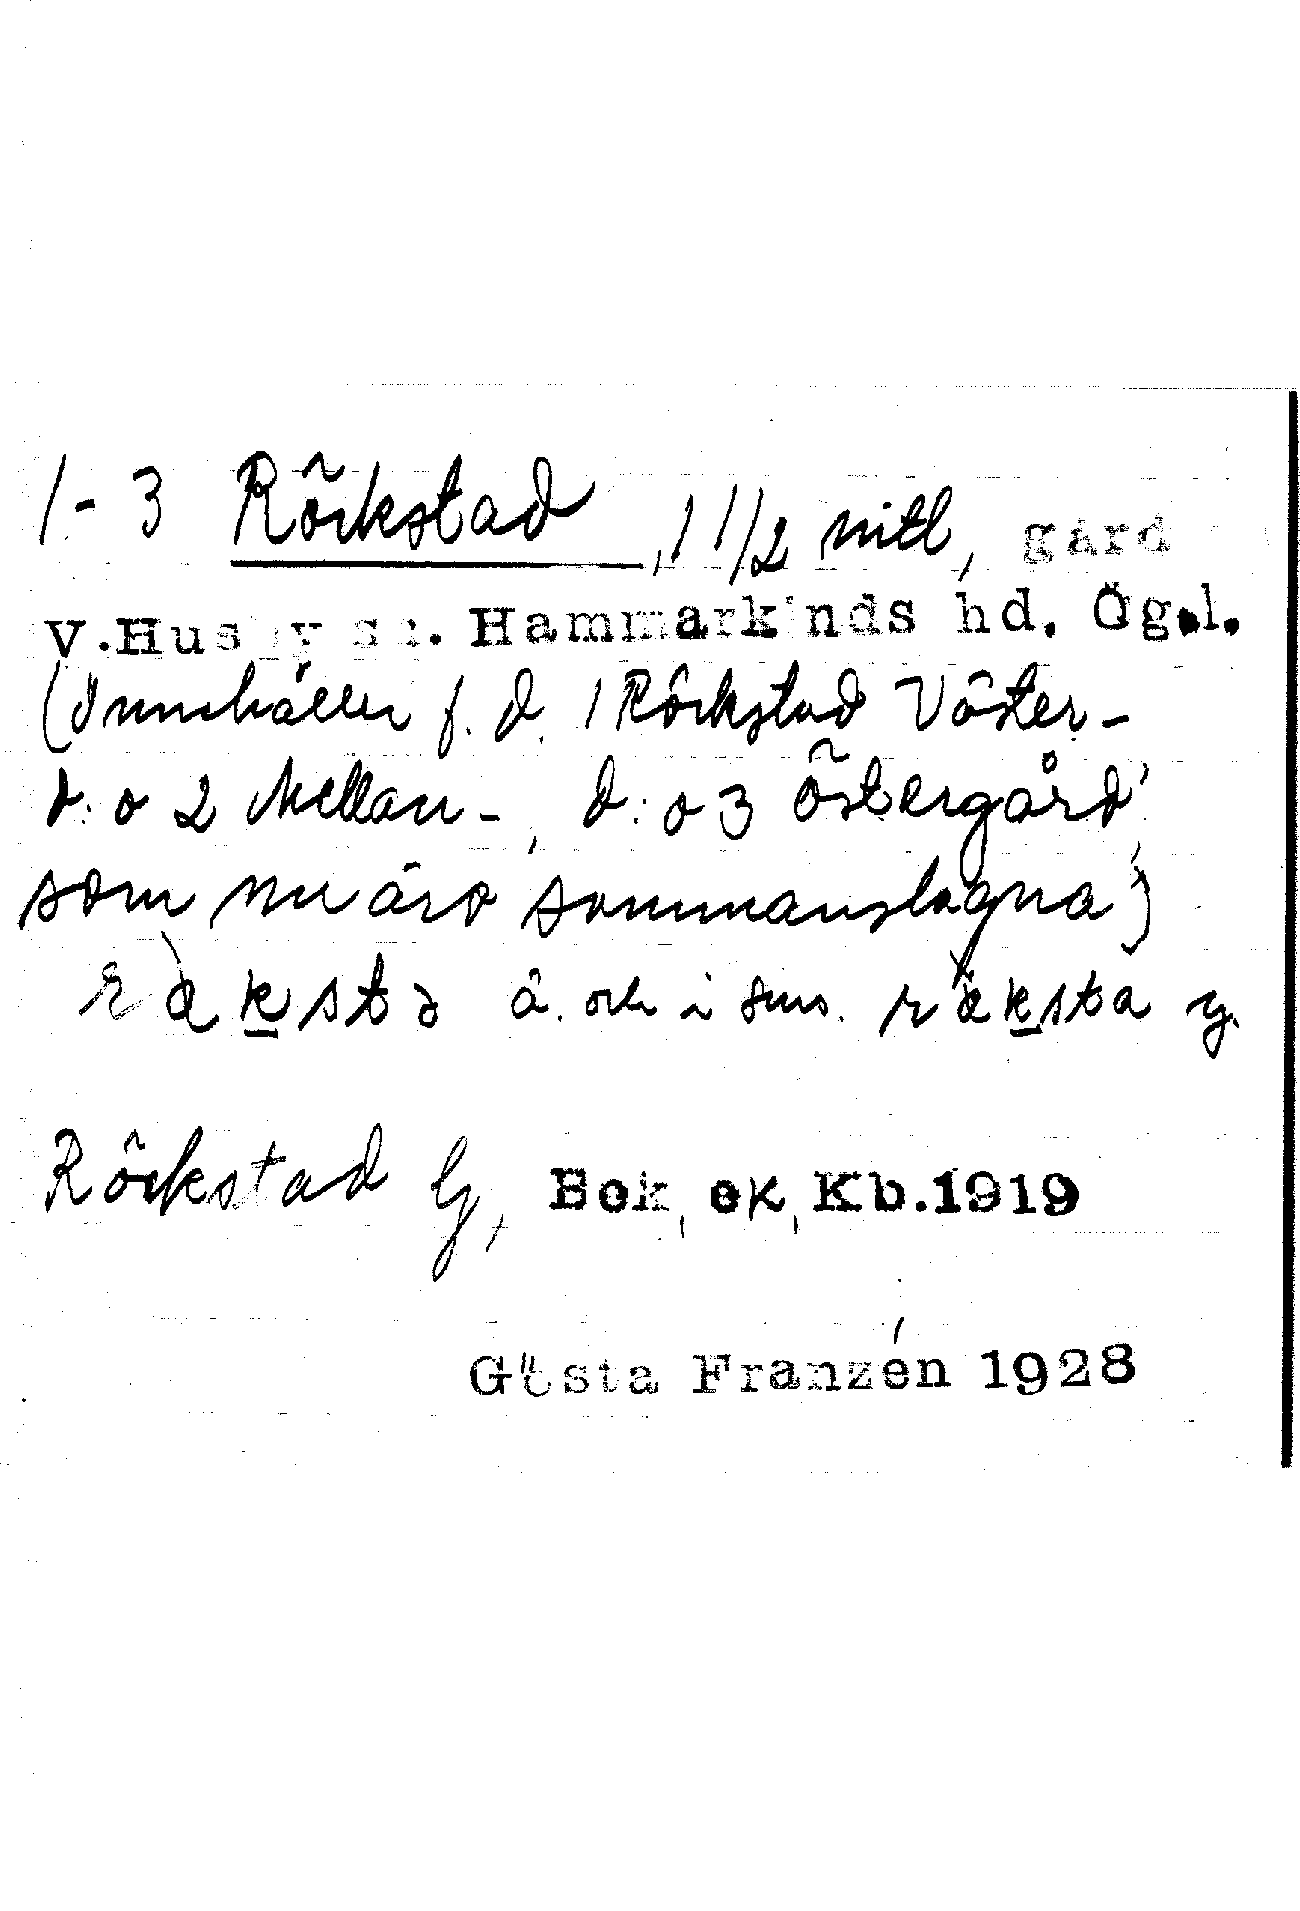 1-3 Röckstad, 1 1/2 mtl, gård
V.Husby sn. Hammarkinds hd. Ög.l.
(Innehåller f.d. 1 Röckstad Väster-
d:o 2 Mellan-, d:o 3 Östergård,
som nu äro sammanslagna)
rækstə ä. och i sms. ræksta y.
Röckstad G, Bok, ek, Kb.1919
Gösta Franzén 1928